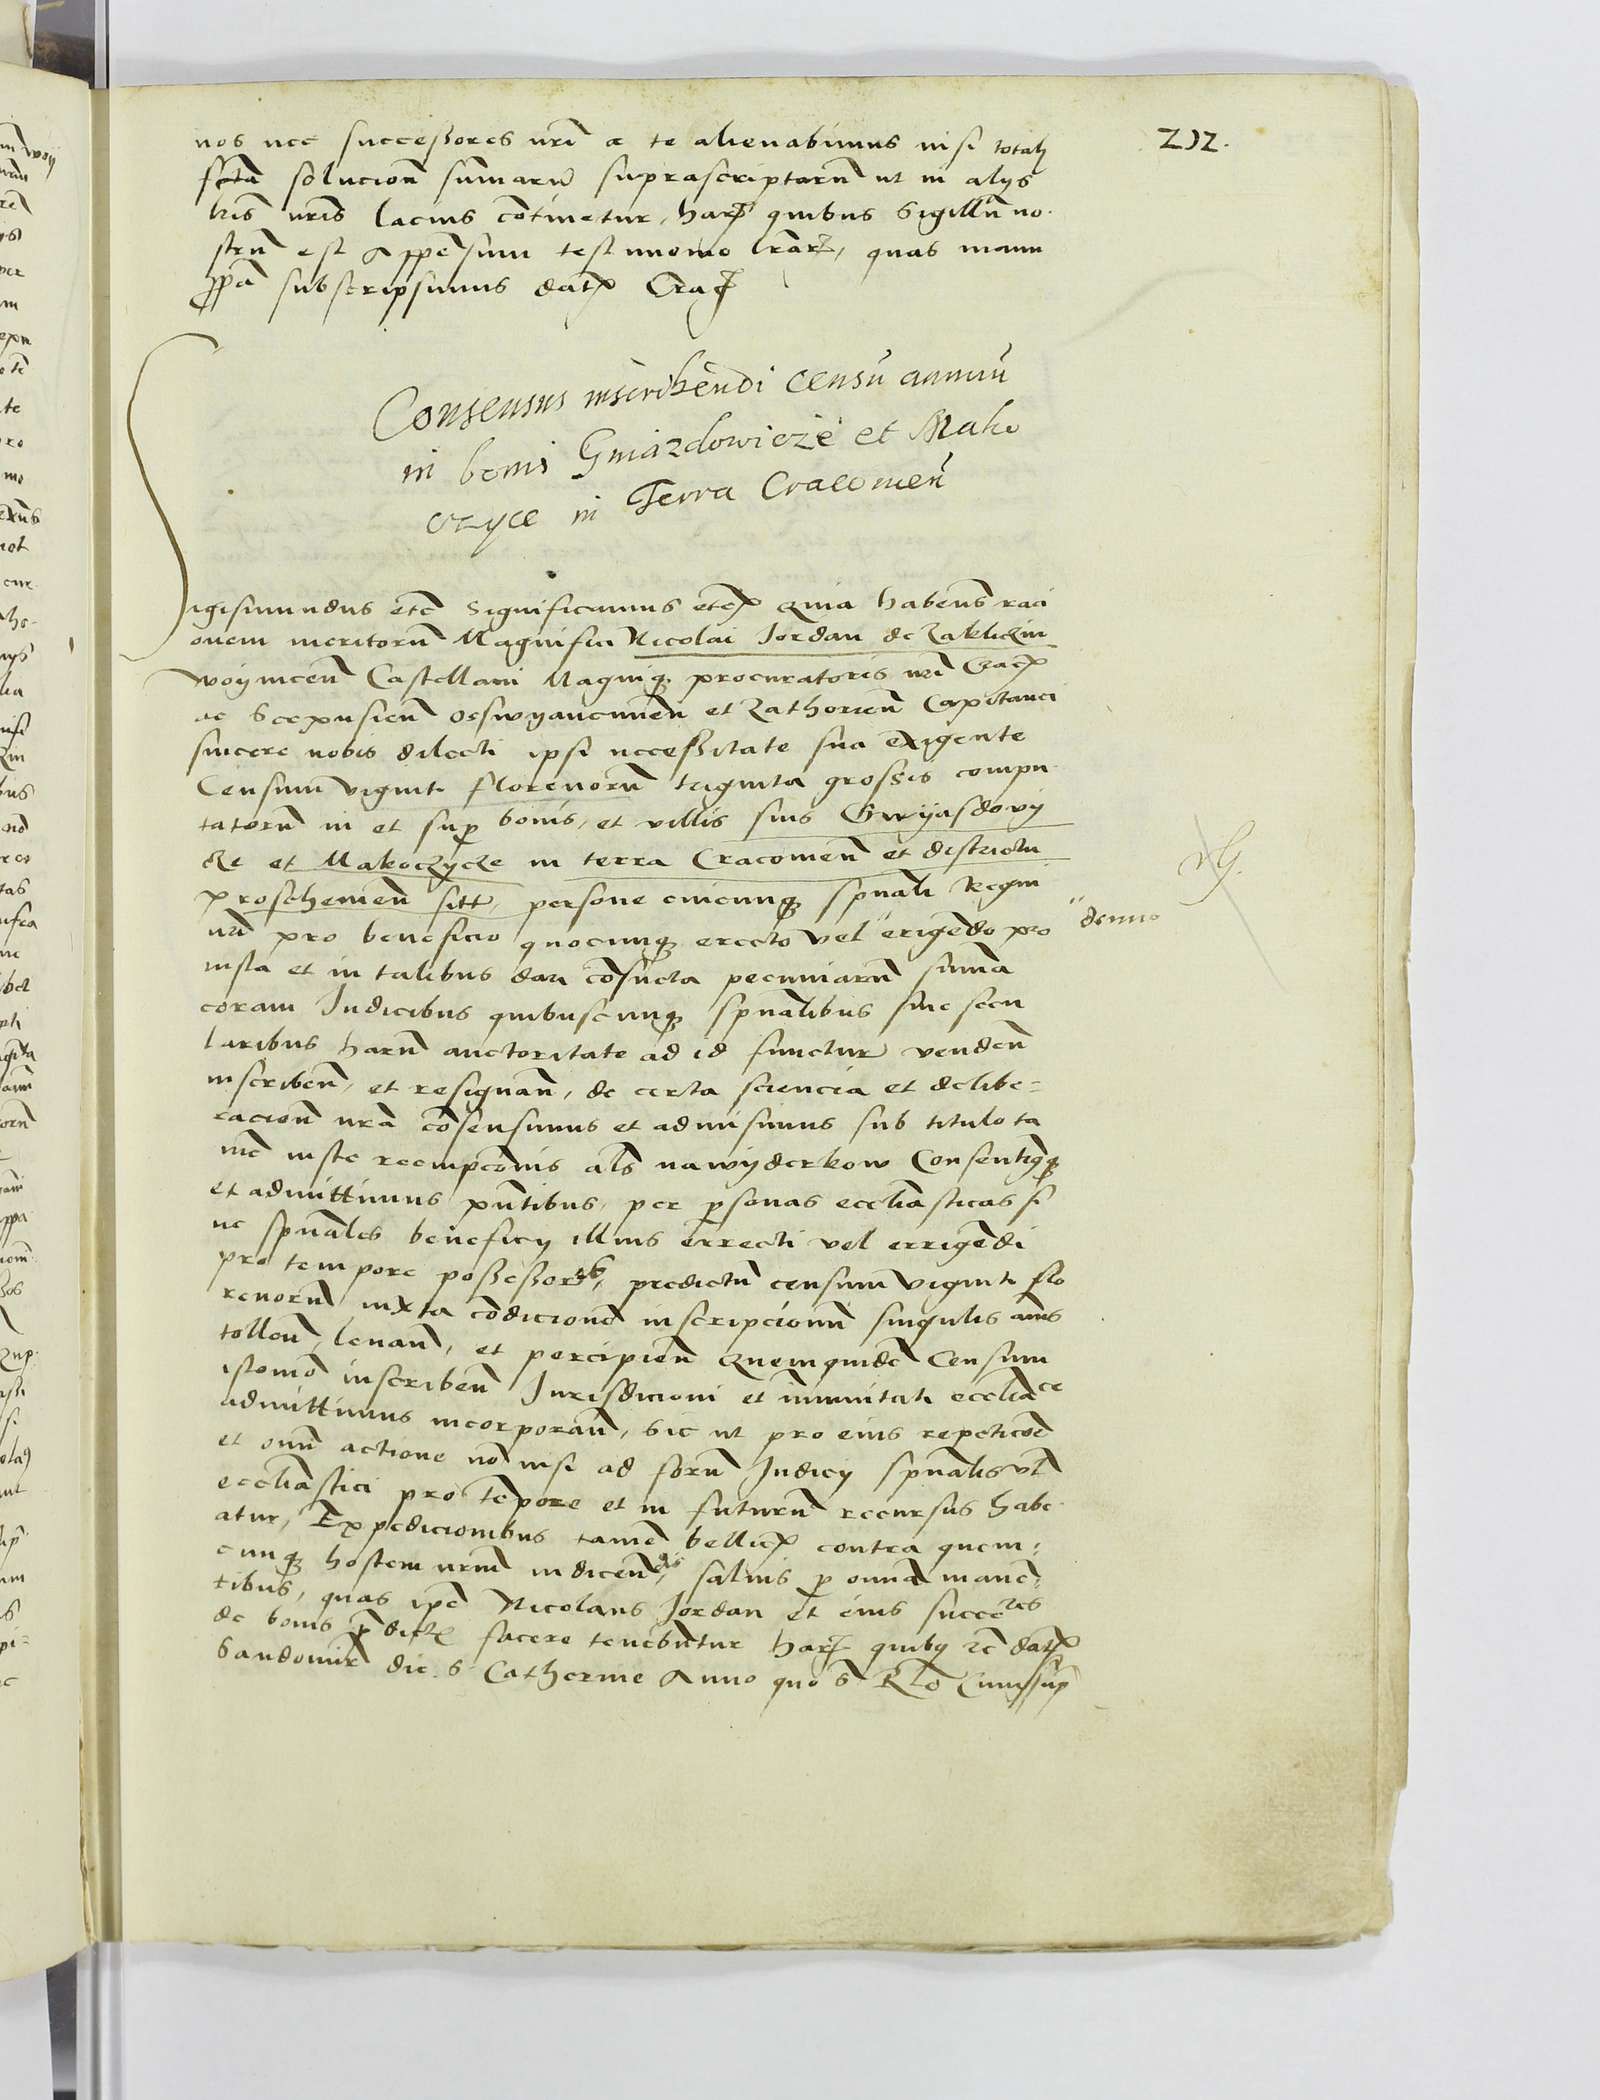 212.
nos nec successores nri a te alienabimus nisi totali
fcta solucion sumaru suprascriptaru ut in alys
lris nris lacius cotinetur, har quibus Sigillu no
stru est Appensum testimonio lrar, quas manu
ppa subscripsimus dat Crac
Consensus inscribendi censu annuu
in bonis Gniazdowicze et Mako
czyce in Terra Cracovien
Sigismundus etc Significamus etc Quia habens raci
onem meritoru Magnifici Nicolai Jordan de Zakliczin
woynicen Castellani Magniq procuratoris nri Crac
ac Scepusien Osswyancimen et Zathorien Capitanei
sincere nobis dilecti ipsi necessitate sua exigente
Censum viginti florenoru triginta grossis compu
tatoru in et sup bonis, et villis suis Gwyasdovy
cze et Makoczycze in terra Cracovien et districtu
proschovien sitt, persone cuicunq spuali Regni
nri pro beneficio quocunq erecto vel " erigendo pro
" denuo
iusta et in talibus dari cosueta pecuniaru suma
coram Judicibus quibuscunq spualibus sive secu
laribus haru auctoritate ad id functur venden
inscriben, et resignan, de certa sciencia et delibe=
racion nra cosensimus et admisimus sub titulo ta
me iuste reempcionis als nawyderkow Consentiq
et admittimus pntibus, per psonas ecclesiasticas si
ve spuales beneficy illius errecti vel errigendi
pro tempore possessores, predictu censum viginti flo
renoru iuxta codicione inscripcionu singulis anis
tollen, levan, et percipien Quemquide Censum
istomo inscriben Jurisdicioni et imunitati ecclia ce
admittimus incorporan, Sic ut pro eius repeticoe
et omn actione no nisi ad foru Judicy spualis vl
eccliastici pro tepore et in futuru recursus habe
atur, Expedicionibus tame bellic contra quem=
cunq hostem nrum indicen dis, salvis p omnia mane=
tibus, quas ipe Nicolaus Jordan et eius succeres
de bonis pdict facere tenebutur har quib rc dat
Sandomir die S Catherine Anno quo S Rlo Cum sup